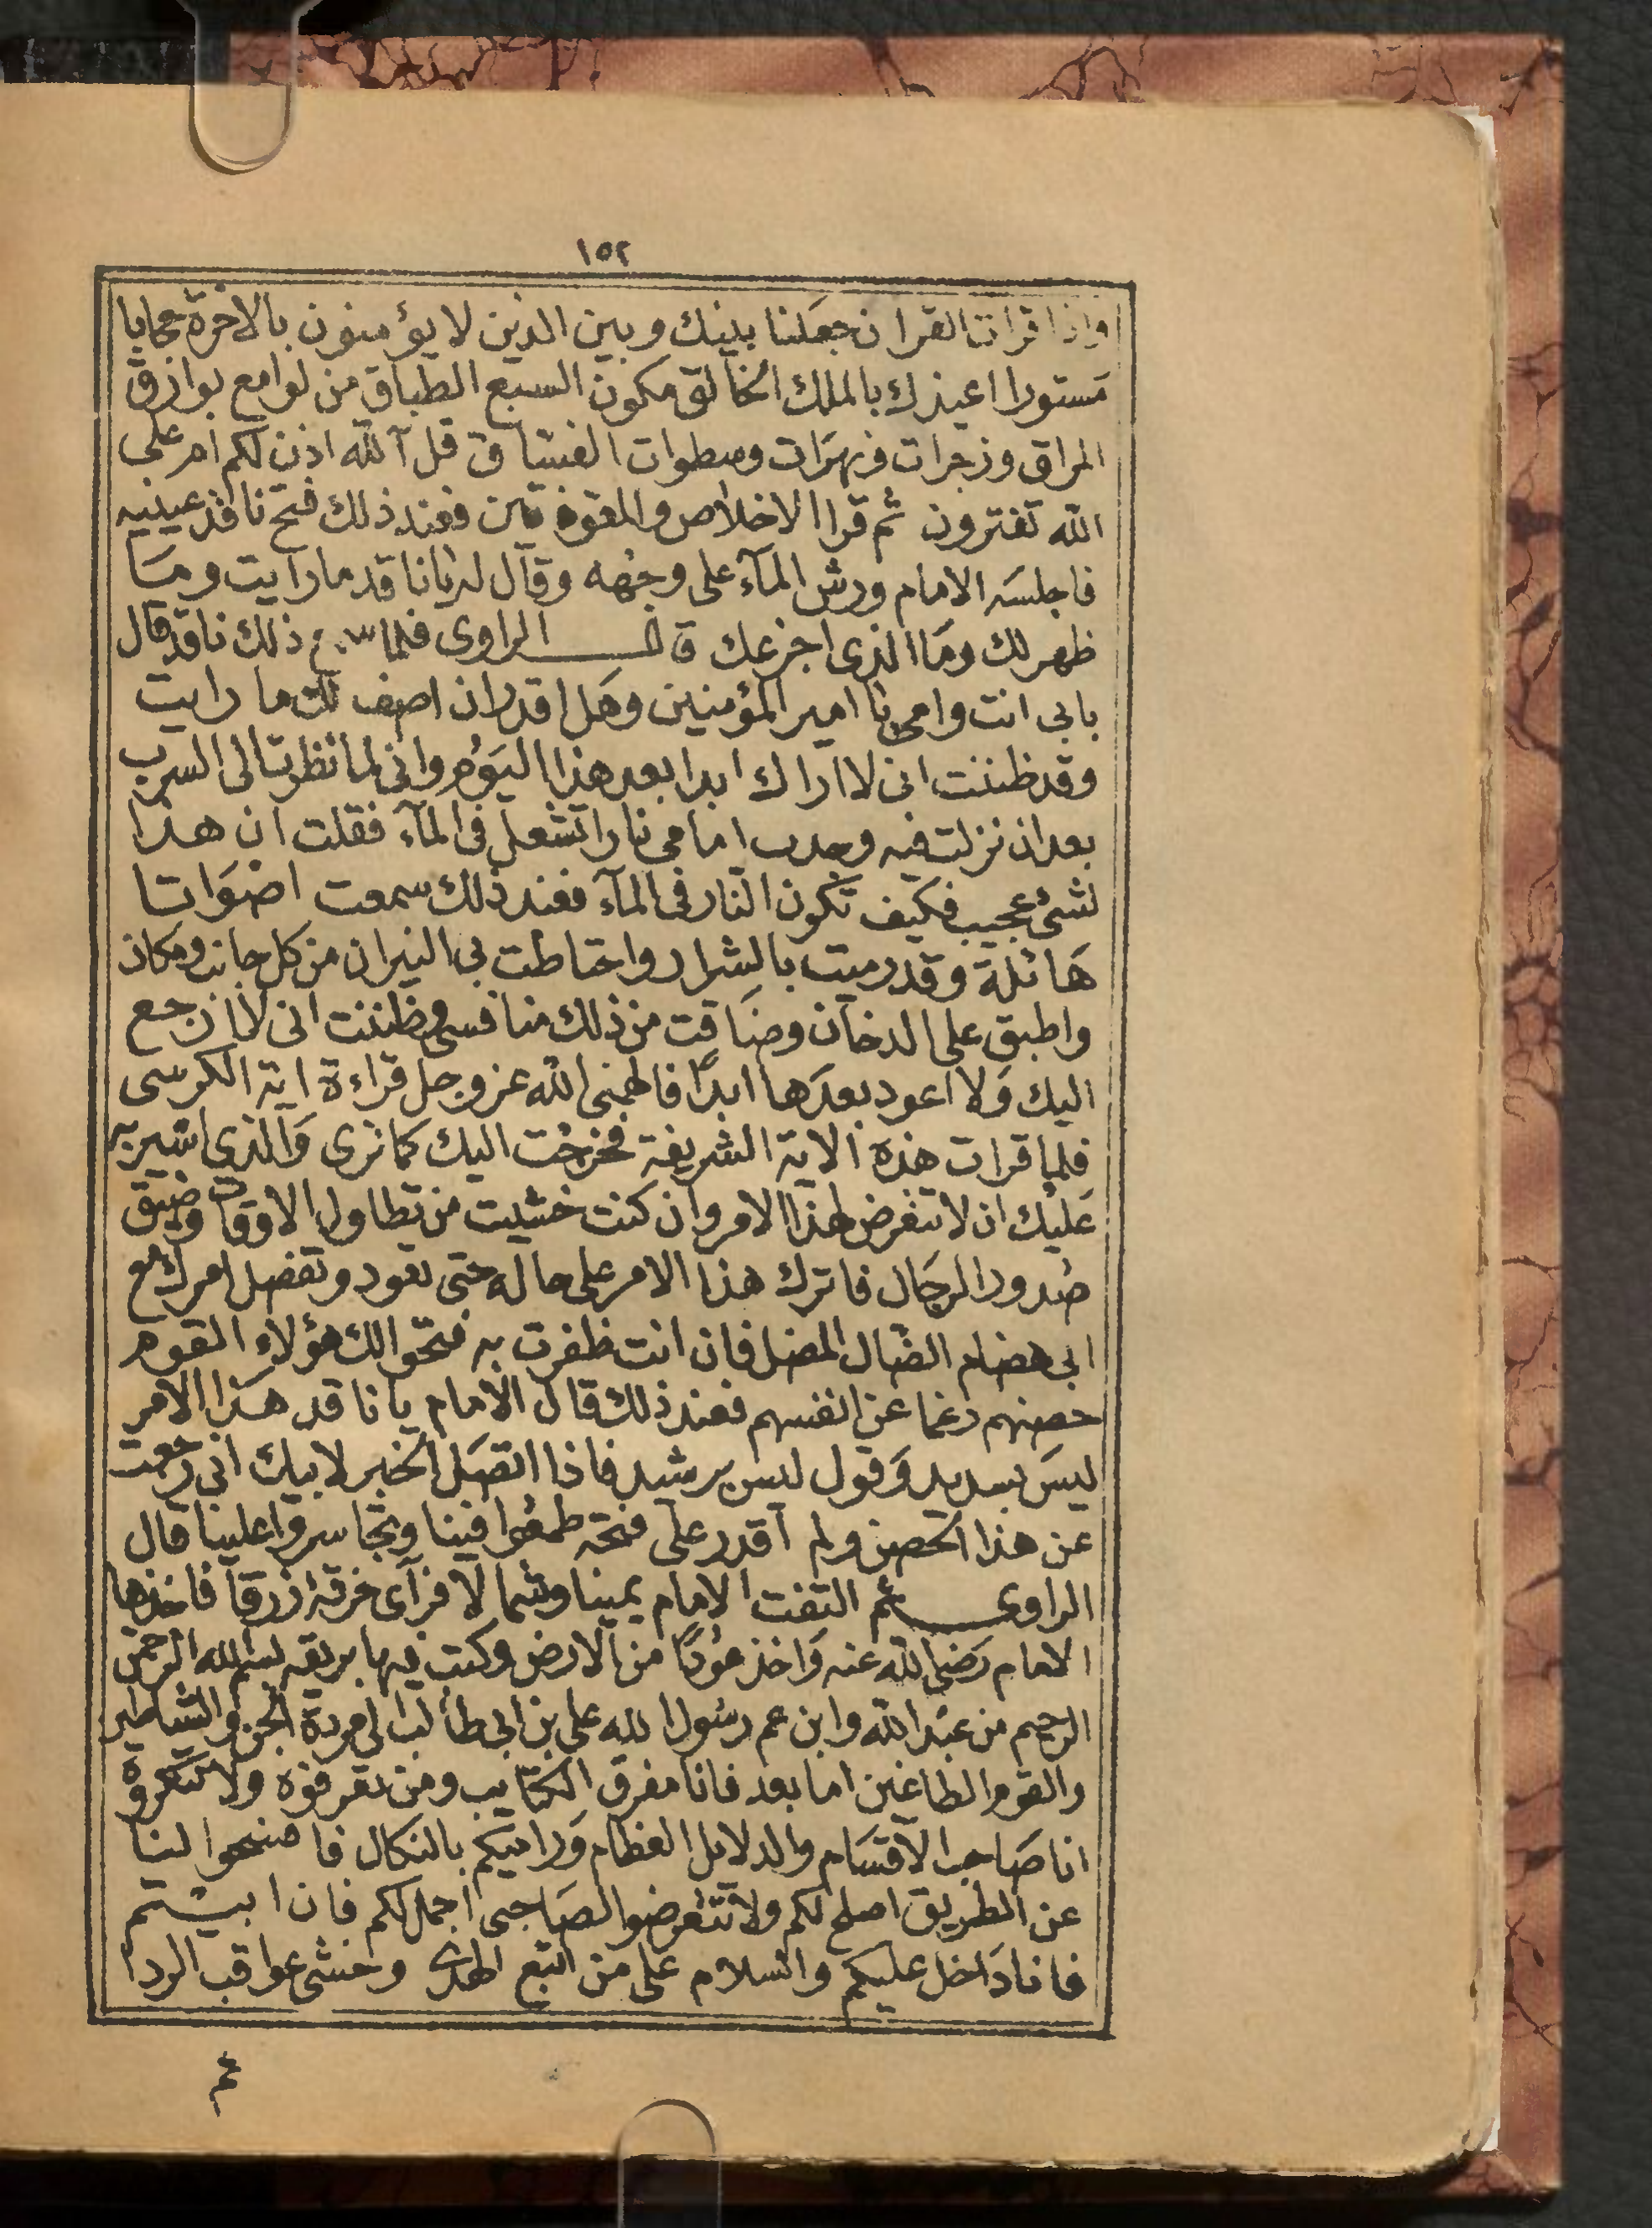 ١٥٢
واذا قرات القران جعلنا بينك وبين الذين لا يؤمنون بالاخرة حجابا
مستورا اعيذك بالملك الخالق مكون السبع الطباق من لوامع بوازق
المراق وزجرات وسطوات الفساق قل آلله اذن لكم ام على
الله تفترون ثم قرا الاخلاص والمعوذتين فعند ذلك فتح ناقد عينيه
فاجلسه الامام ورش المآء على وجهه وقال له يا ناقد ما رايت وما
ظهر لك وما الذى اجزعك قال الراوى فلما سمع ذلك ناقد قال
بابى انت وامى يا امير المؤمنين وهل اقدر ان اصف لك ما رايت
وقد ظننت انى لا اراك ابدا بعد هذا اليوم وانى لما نظرت الى السرب
بعد ان نزلت فيه وجدت امامى نارا تشعل فى المآء فقلت ان هذا
لشئ عجيب فكيف تكون النار فى المآء فعند ذلك سمعت اصواتا
هائلة وقد رميت بالشرار واحتاطت بى النيران من كل جانب ومكان
واطبق على الدخان وضاقت من ذلك منافسى وظننت انى لا ارجع
اليك ولا اعود بعدها ابدا فالهمنى الله عز وجل قراءة اية الكرسى
فلما قرات هذه الاية الشريفة فخرجت اليك كما ترى والذى اشير به
عليك ان لا تتعرض لهذا الامر وان كنت خشيت من تطاول الاوقات وضيق
صدور الرجال فاترك هذا الامر على حاله حتى تعود وتفصل امرك مع
ابى هضام الضال المضل فان انت ظفرت به فتحوا لك هؤلاء القوم
حصنهم رغما عن انفسهم فعند ذلك قال الامام يا ناقد هذا الامر
ليس بسديد وقول ليس برشيد فاذا اتصل الخبر لابيك انى رجعت
عن هذا الحصن ولم اقدر على فتحه طمعوا فينا وتجاسروا علينا قال
الراوى ثم التفت الامام يمينا وشمالا فرآى خرقة زرقا فاخذها
الامام رضى الله عنه واخذ عودا من الارض وكتب فيها بريقه بسم الله الرحمن
الرحيم من عبد الله وابن عم رسول الله على بن ابى طالب الى مردة الجن والشياطين
والقوم الطاغين اما بعد فانا مفرق الكتايب ومن تعرفوه ولا تنكروه
انا صاحب الاقسام والدلايل العظام وراميكم بالنكال فافتحوا لنا
عن الطريق اصلح لكم ولا تتعرضوا لصاحبى اجمل لكم فان ابيتم
فانا داخل عليكم والسلام على من اتبع الهدى وخشى عواقب الردا
ثم